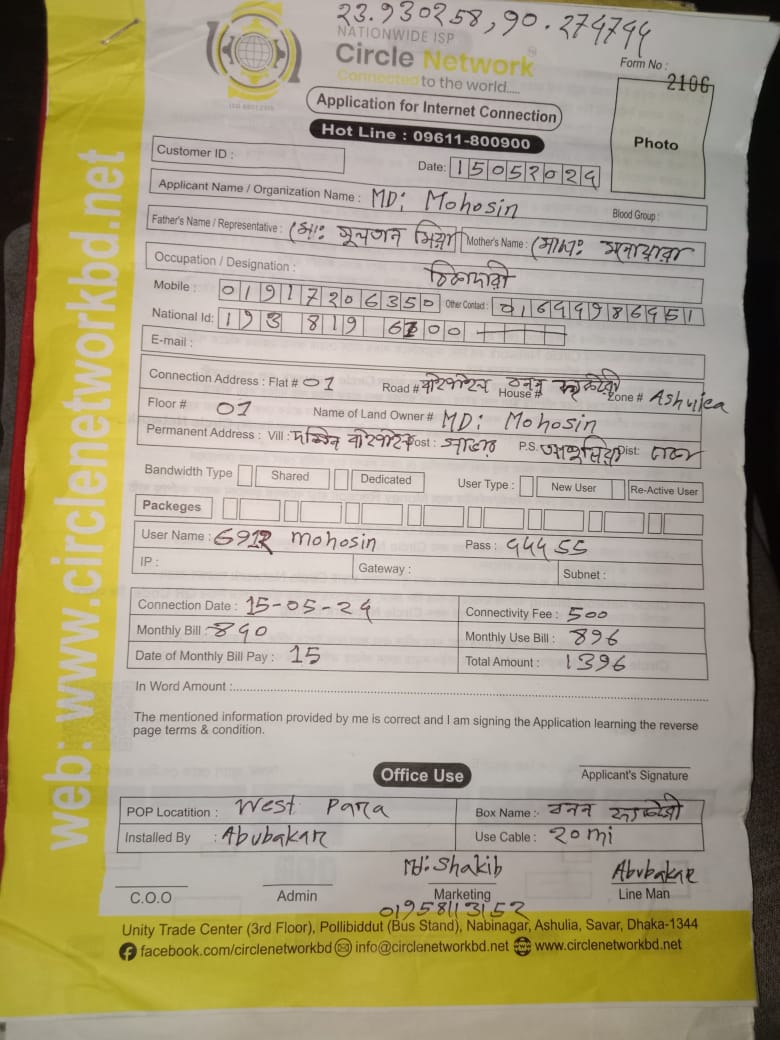 23.930258, 90.274794
NATIONWIDE ISP
Circle Network
Connected to the world.....
Form No :
2106
ISO 9001:2015
Application for Internet Connection
Hot Line : 09611-800900
Photo
Customer ID :
Date: 15052024
Applicant Name / Organization Name : MD: Mohosin
Blood Group :
Father's Name / Representative : (মোঃ মিয়া Mother's Name : (মোসাঃ
Occupation / Designation : ঠিকাদারী
Mobile : 01917206350 Other Contact :
National Id: 193 819 6100
E-mail :
Connection Address : Flat # 01 Road # House # Zone # Ashulea
Floor # 01 Name of Land Owner # MD: Mohosin
Permanent Address : Vill : Post : সাভার P.S. আশুলিয়া Dist: ঢাকা
Bandwidth Type Shared Dedicated User Type : New User Re-Active User
Packeges
User Name : 6912 mohosin Pass : 94455
IP : Gateway : Subnet :
Connection Date : 15-05-24 Connectivity Fee : 500
Monthly Bill : 840 Monthly Use Bill : 896
Date of Monthly Bill Pay : 15 Total Amount : 1396
In Word Amount :
The mentioned information provided by me is correct and I am signing the Application learning the reverse
page terms & condition.
Office Use
Applicant's Signature
POP Locatition : West Para Box Name :-
Installed By : Abubakar Use Cable : 20 mi
Md: Shakib Abubakar
C.O.O Admin Marketing Line Man
01958113152
Unity Trade Center (3rd Floor), Pollibiddut (Bus Stand), Nabinagar, Ashulia, Savar, Dhaka-1344
facebook.com/circlenetworkbd info@circlenetworkbd.net www.circlenetworkbd.net
web: www.circlenetworkbd.net